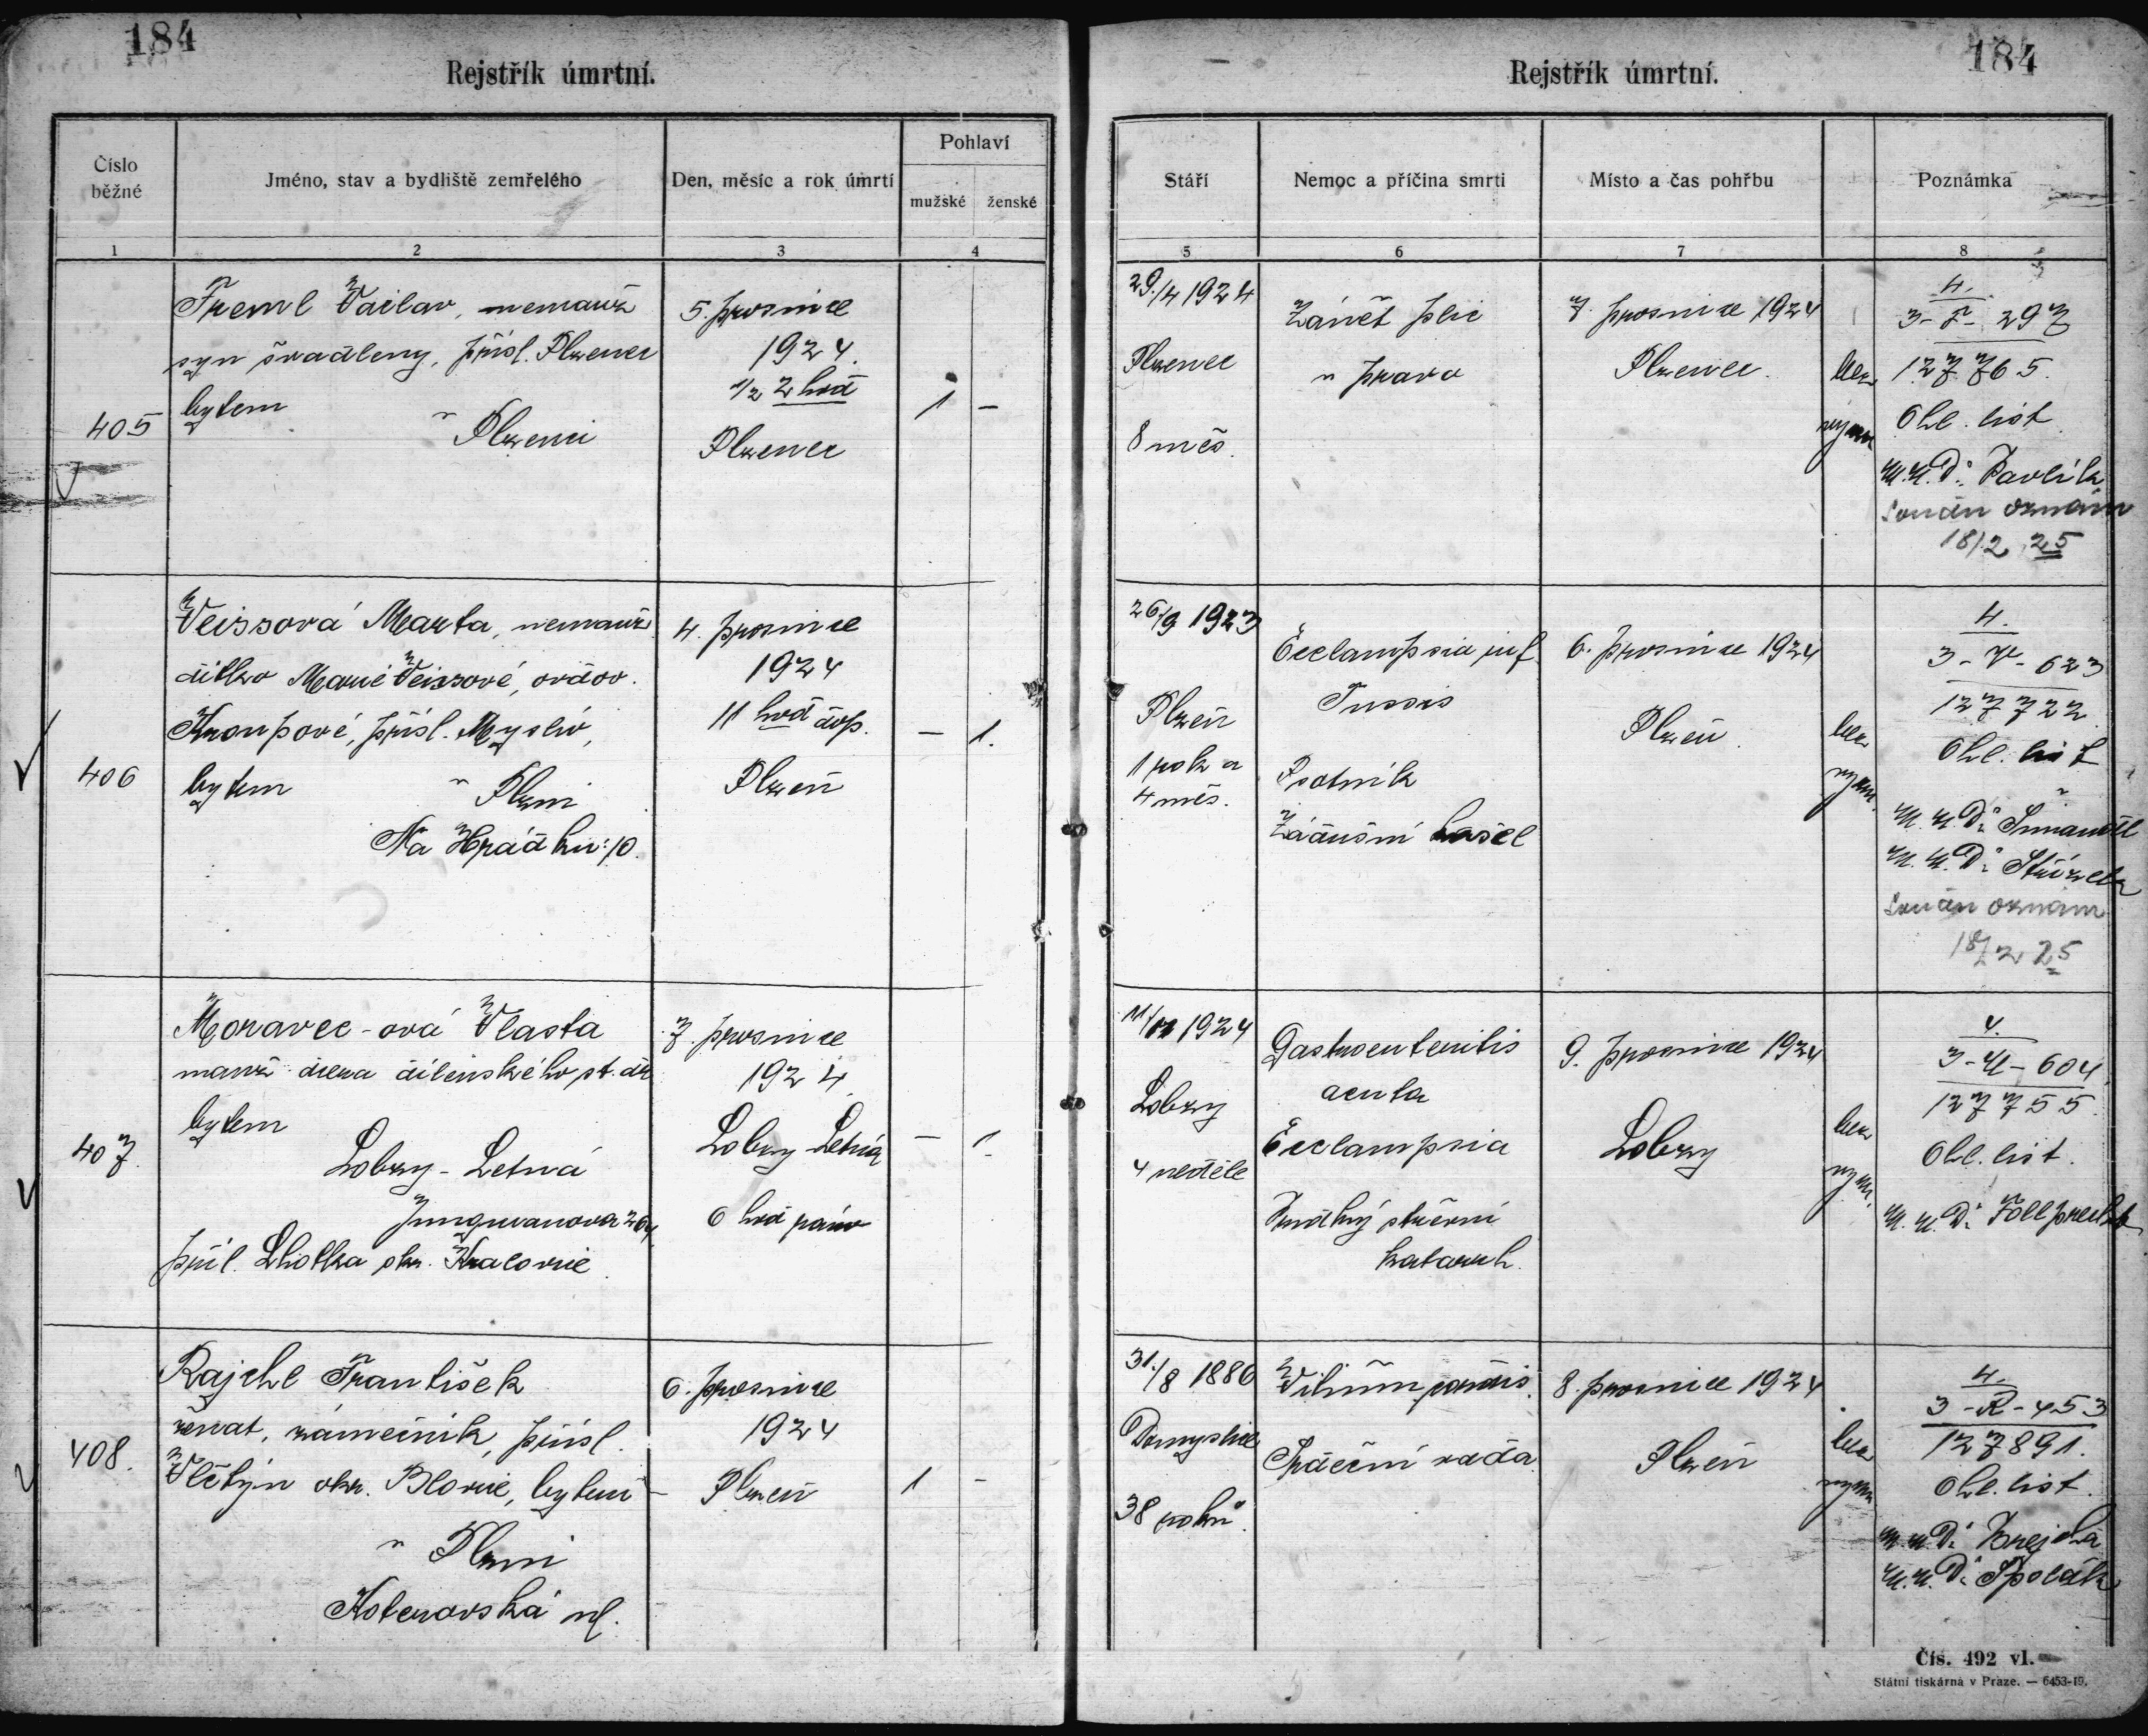 184
Rejstřík úmrtní.
Číslo běžné
Jméno, stav a bydliště zemřelého
Den, měsíc a rok úmrtí
Pohlaví
mužské
ženské
1
2
3
4
405
Treml Václav, nemanž
syn švadleny, přísl. Plzenec
bytem
v Plzenci
5. prosince
1924.
1/2 2 hod
Plzenec
1 –
406
Weissová Marta, nemanž
dítko Marie Weissové, ovdov.
Kroupové, přísl. Myslív,
bytem
v Plzni
Na Hrádku: 10.
4. prosince
1924
11 hod dop.
Plzeň
– 1.
407.
Moravec-ová Vlasta
manž dcera dílenského
bytem
Lobzy-Letná
Jungmanova
Lhotka okr. Kralovice
7. prosince
1924
Lobzy Letná
6 hod ráno
– 1
408.
Rajchl František
ženat, zámečník, přísl.
Vlčtejn okr. Blovic, bytem
v Plzni
Koterovská ul.
6. prosince
1924
Plzeň
1 –
184
Rejstřík úmrtní.
Stáří
Nemoc a příčina smrti
Místo a čas pohřbu
Poznámka
5
6
7
8
29./4 1924
Plzenec
8 měs.
Zánět plic
v pravo
7. prosince 1924
Plzenec.
bez
vyzn
4.
3-T-297
127765.
Ohl. list
M.U.Dr. Pavlík
Soudu oznám
18/2 25
26/9 1923
Plzeň
1 rok a
4 měs.
Ecclampsia inf
Tussis
Psotník
Zádušní kašel
6. prosince 1924
Plzeň.
bez
vyzn.
4.
3-W-623
127722
Ohl. list
M.U.Dr.
M.U.Dr.
Soudu oznám
18/2 25
1924
Lobzy
4 neděle
Gastroenteritis
acuta
Ecclampsia
Prudký střevní
katarrh.
9. prosince 1924
Lobzy
bez
vyzn.
4.
3-M-604
127755.
Ohl. list.
M.U.Dr. Follprecht
31./8 1886
38 roků.
Vitium cordis.
Srdeční vada
8. prosince 1924
Plzeň
bez
vyzn
4.
3-R-453
127891.
Ohl. list.
M.U.Dr. Krejčí
M.U.Dr.
Čís. 492 vl.
Státní tiskárna v Praze. — 6453-19.